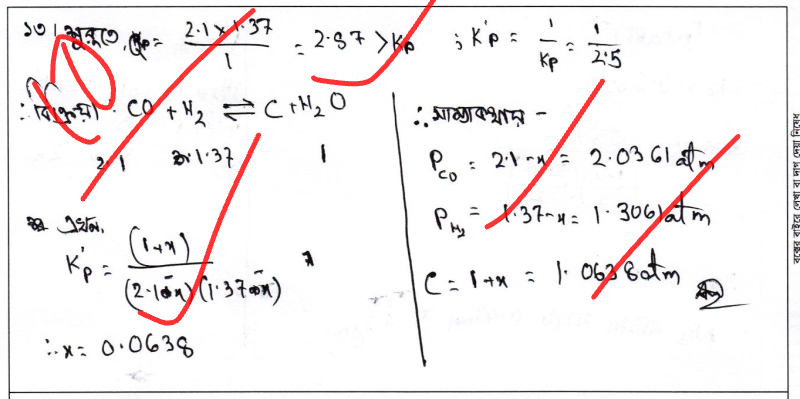 ১৩। শুরুতে, Qp = 2.1 × 1.37 / 1 = 2.87 > Kp ; K'p = 1/Kp = 1/2.5
∴ বিক্রিয়া: CO + H₂ ⇌ C + H₂O
2.1 1.37 1
এখন,
K'p = (1+x) / (2.1-x)(1.37-x)
∴ x = 0.0638
∴ সাম্যাবস্থায় -
P_CO = 2.1-x = 2.0361 atm
P_H₂ = 1.37-x = 1.3061 atm
C = 1+x = 1.0638 atm
বক্সের বাইরে লেখা বা দাগ দেয়া নিষেধ